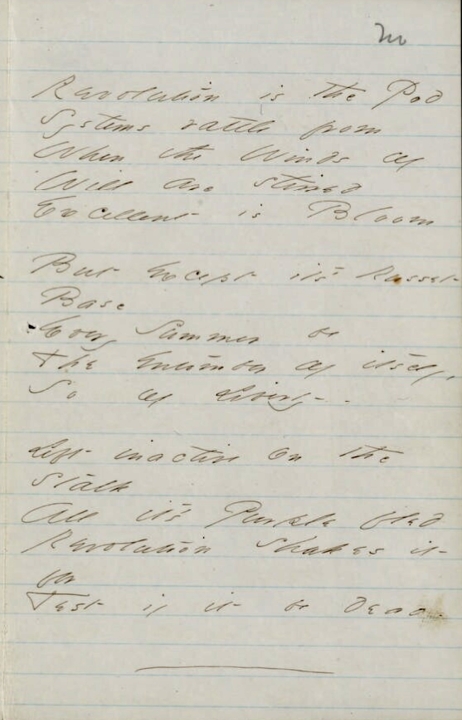 Revolution is the Pod
Systems rattle from
When the Winds of
Will are stirred
Excellent is Bloom
But except it's Russet
Base
Every Summer be
The Entomber of itself,
So of Liberty -
Left inactive on the
Stalk
All it's Purple fled
Revolution shakes it
for
Test if it be dead -